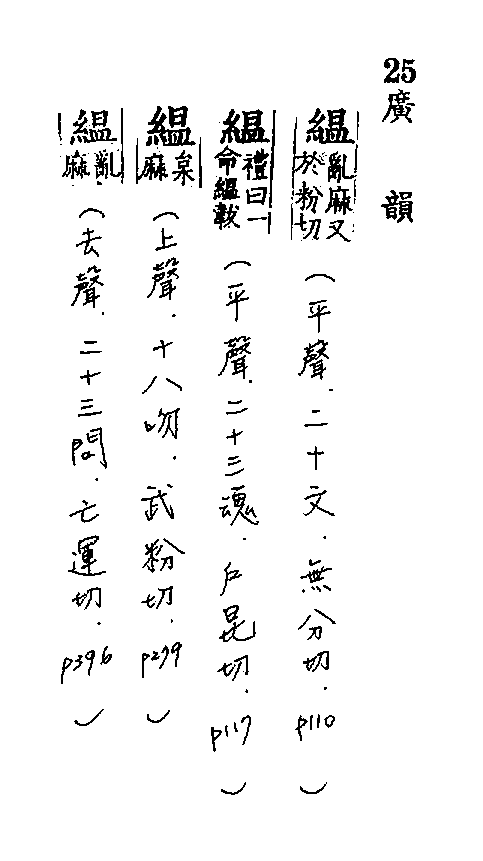 25廣韻
縕亂麻又於粉切(平聲.二十文.無分切.p110)
縕禮曰一命縕韍(平聲.二十三魂.戶昆切.p117)
縕枲麻(上聲.十八吻.武粉切.p279)
縕亂麻.(去聲.二十三問.亡運切.p396)